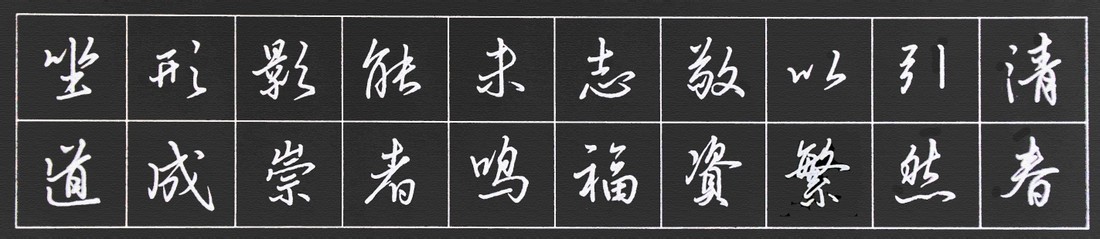 坐形影能未志敬以引清
道成崇者鸣福資繁然春